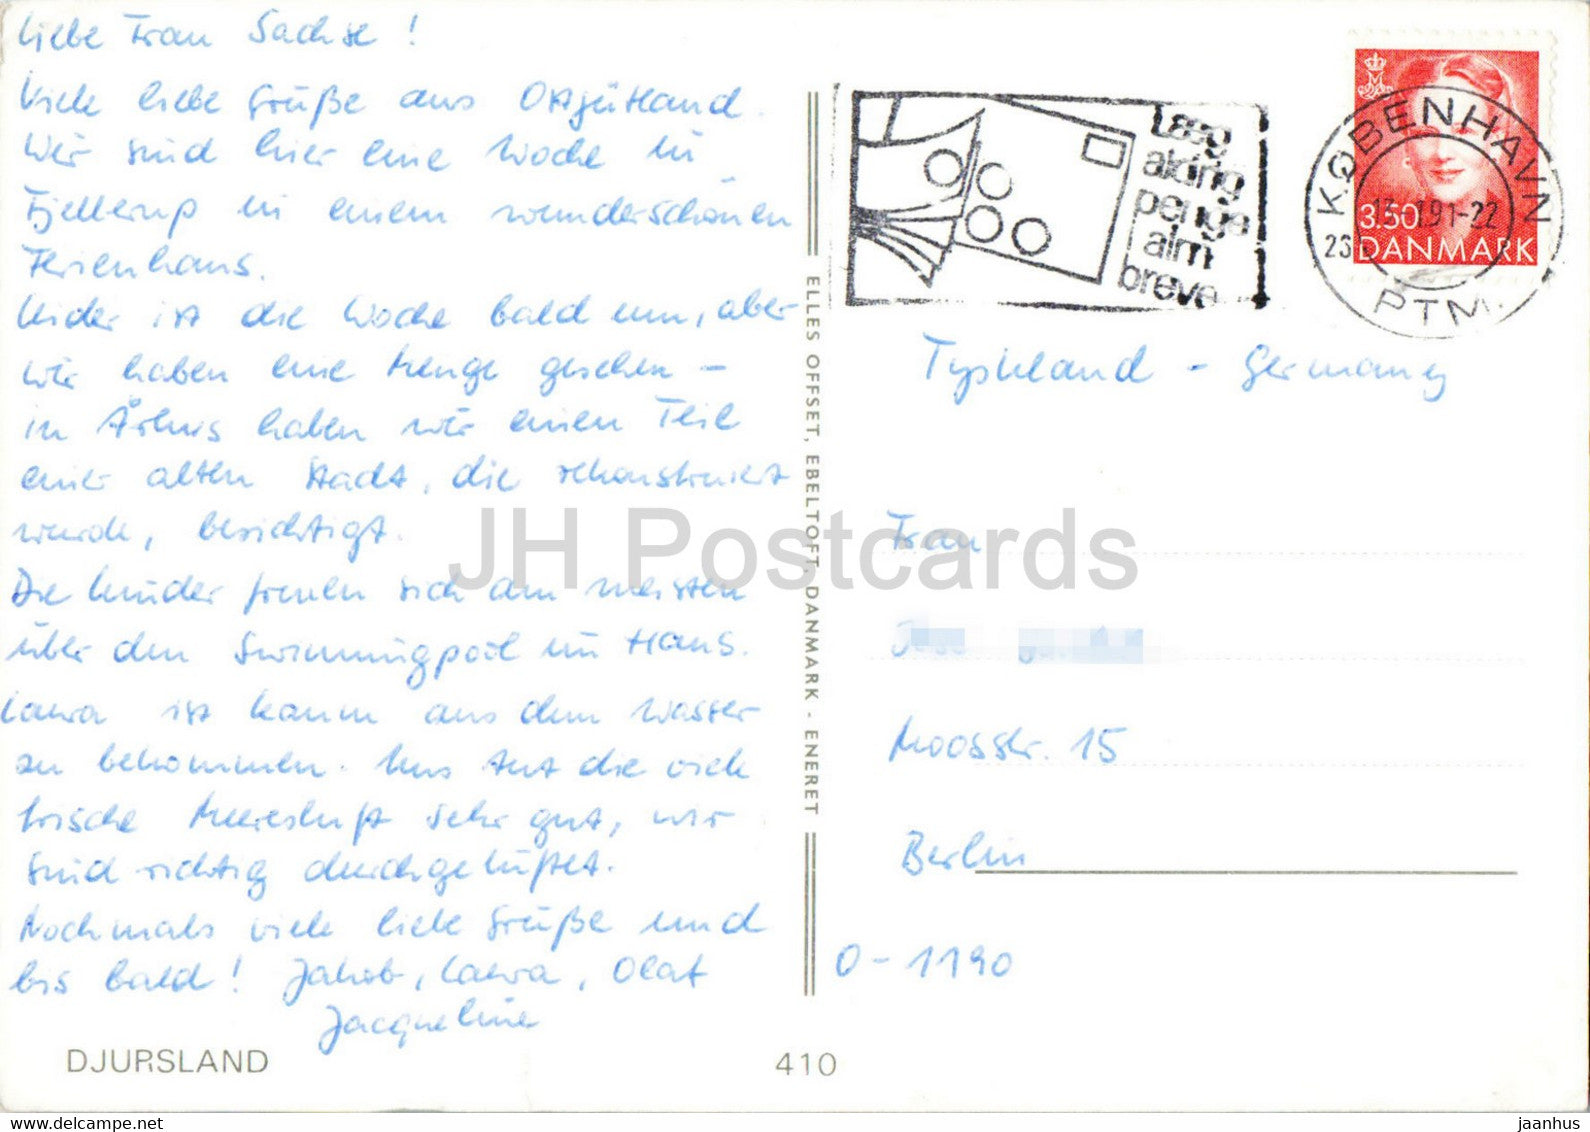 Liebe Frau Sachse !
Viele liebe Grüße aus Ostjütland.
Wir sind hier eine Woche in
Fjellerup in einem wunderschönen
Ferienhaus.
Leider ist die Woche bald um, aber
wir haben eine Menge gesehen –
in Århus haben wir einen Teil
einer alten Stadt, die rekonstruiert
wurde, besichtigt.
Die Kinder freuen sich am meisten
über den Swimmingpool im Haus.
Laura ist kaum aus dem Wasser
zu bekommen. Uns tut die viele
frische Meeresluft sehr gut, wir
sind richtig durchgelüftet.
Nochmals viele liebe Grüße und
bis bald! Jakob, Laura, Olaf
Jacqueline
DJURSLAND
410
ELLES OFFSET, EBELTOFT, DANMARK - ENERET
Læg
aldrig
penge
i alm
breve
KØBENHAVN
PTM.
3.50
DANMARK
Tyskland - Germany
Frau
Moosstr. 15
Berlin
O-1190
JH Postcards
www.delcampe.net
jaanhus